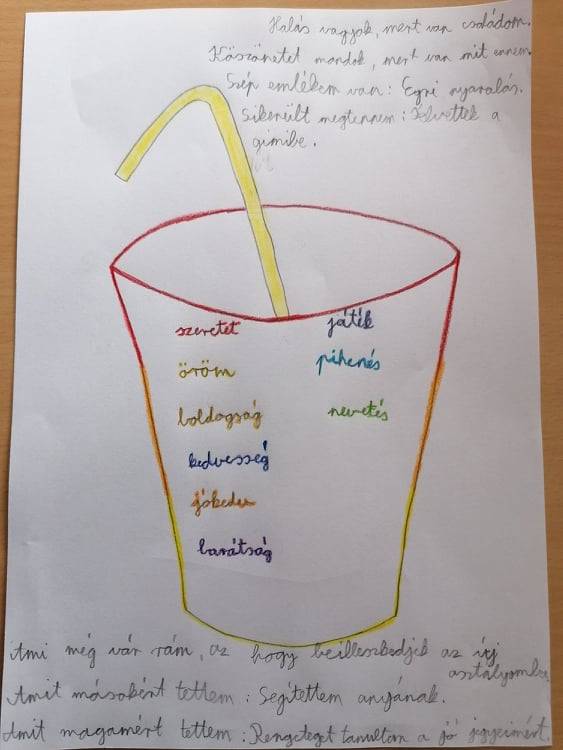 Hálás vagyok, mert van családom.
Köszönetet mondok, mert van mit ennem.
Szép emlékem van: Egri nyaralás.
Sikerült megtennem: Felvettek a
gimibe.
szeretet
játék
öröm
pihenés
boldogság
nevetés
kedvesség
jókedv
barátság
Ami még vár rám, az hogy beilleszkedjek az új
osztályomba.
Amit másokért tettem: Segítettem anyának.
Amit magamért tettem: Rengeteget tanultam a jó jegyeimért.